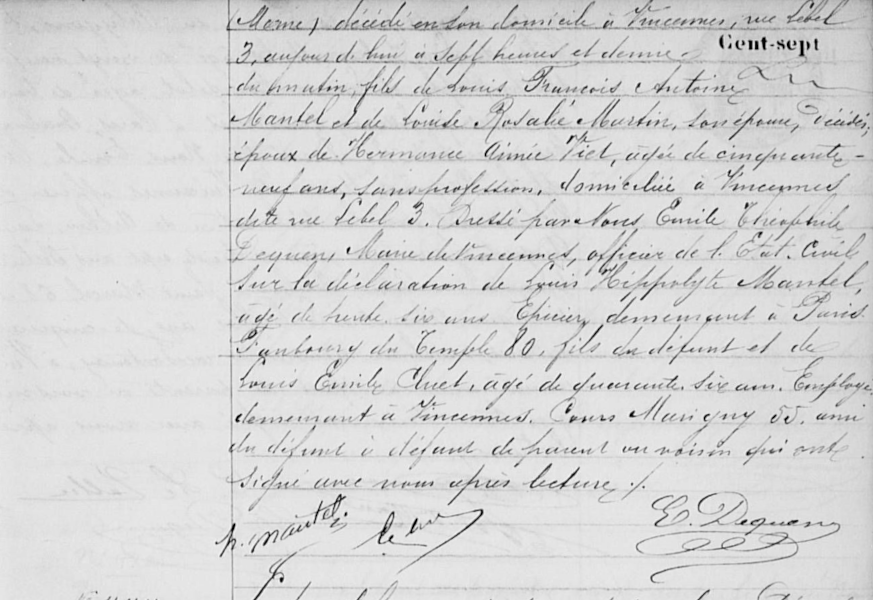 (Marne) décédé en son domicile à Vincennes, rue Lebel
Cent-sept
3, aujourd'hui à sept heures et demie
du matin, fils de Louis François Antoine
Mantel et de Louise Rosalie Martin, son épouse, décédés,
époux de Hermance Aimée Viet, âgée de cinquante-
neuf ans, sans profession, domiciliée à Vincennes
dite rue Lebel 3. Dressé par Nous, Emile Théophile
Dequen, Maire de Vincennes, officier de l'Etat-Civil
sur la déclaration de Louis Hippolyte Mantel,
âgé de trente six ans Epicier, demeurant à Paris
Faubourg du Temple 80, fils du défunt et de
Louis Emile Cluet, âgé de quarante six ans. Employé
demeurant à Vincennes. Cours Marigny 55. ami
du défunt à défaut de parent ou voisin qui ont
signé avec nous après lecture ./.
h. mantel
E. Dequen